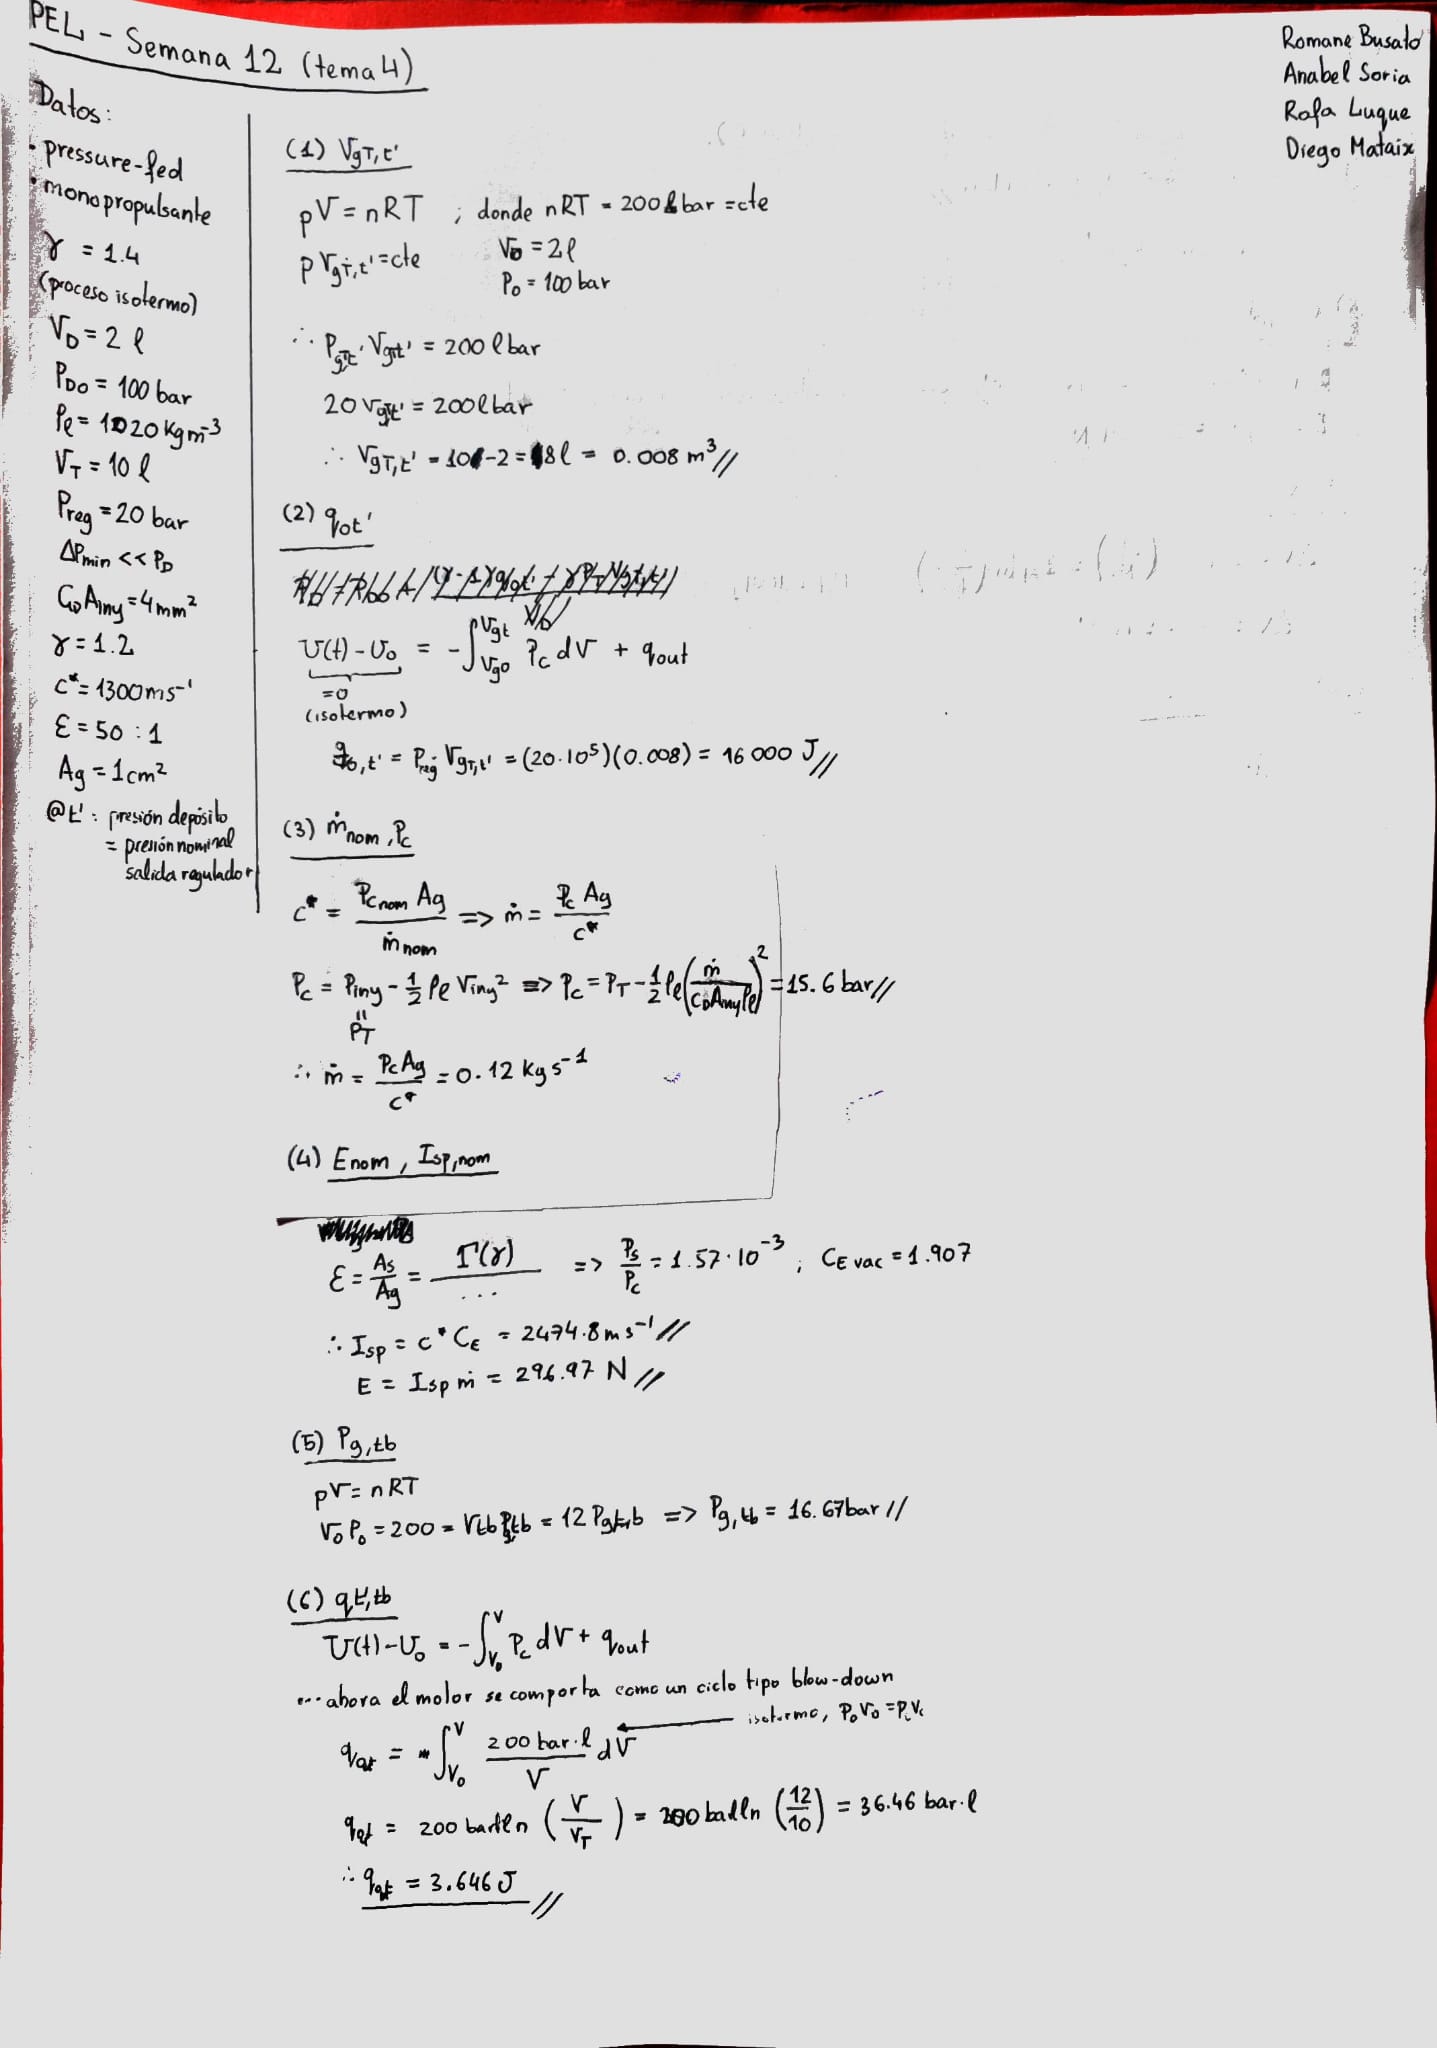 PEL - Semana 12 (tema 4)
Romane Busato
Anabel Soria
Rafa Luque
Diego Mataix
Datos:
· pressure-fed
· monopropulsante
γ = 1.4
(proceso isotermo)
V_D = 2 l
P_D0 = 100 bar
ρ_l = 1020 kg m^-3
V_T = 10 l
P_reg = 20 bar
ΔP_min << P_D
C_D A_iny = 4 mm^2
γ = 1.2
c* = 1300 m s^-1
ε = 50 : 1
A_g = 1 cm^2
@t' : presión depósito
= presión nominal
salida regulador
(1) V_gT,t'
pV = nRT ; donde nRT = 200 l bar = cte
p V_gT,t' = cte V_D = 2 l
P_0 = 100 bar
∴ P_gTt' · V_gTt' = 200 l bar
20 V_gTt' = 200 l bar
∴ V_gT,t' = 10 - 2 = 8 l = 0.008 m^3 //
(2) q_0t'
U(t) - U_0 = - ∫_Vg0^Vgt P_c dV + q_out
= 0
(isotermo)
q_0,t' = P_reg V_gT,t' = (20·10^5)(0.008) = 16 000 J //
(3) ṁ_nom, P_c
c* = P_c nom A_g / ṁ_nom => ṁ = P_c A_g / c*
P_c = P_iny - 1/2 ρ_l V_iny^2 => P_c = P_T - 1/2 ρ_l (ṁ / C_D A_iny ρ_l)^2 = 15.6 bar //
=
P_T
∴ ṁ = P_c A_g / c* = 0.12 kg s^-1
(4) E_nom, I_sp,nom
ε = A_s / A_g = Γ(γ) / ... => P_s / P_c = 1.57 · 10^-3 ; C_E vac = 1.907
∴ I_sp = c* C_E = 2474.8 m s^-1 //
E = I_sp ṁ = 296.97 N //
(5) P_g,tb
pV = nRT
V_0 P_0 = 200 = V_tb P_g,tb = 12 P_gt,b => P_g,tb = 16.67 bar //
(6) q_t',tb
U(t) - U_0 = - ∫_V0^V P_c dV + q_out
... ahora el motor se comporta como un ciclo tipo blow-down
isotermo, P_0 V_0 = P_c V_c
q_0t = ∫_V0^V 200 bar·l / V dV
q_0t = 200 bar l ln (V / V_T) = 200 bar l ln (12 / 10) = 36.46 bar·l
∴ q_0t = 3.646 J //